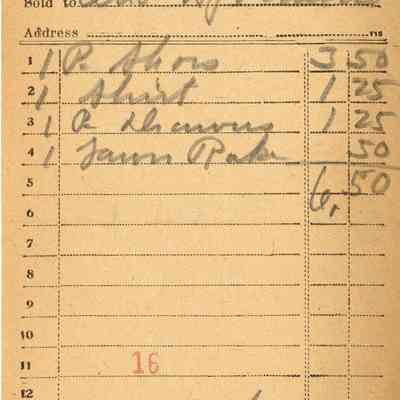 Sold to
Address
1 1 P. Shoes 3 50
2 1 Shirt 1 25
3 1 P. Drawers 1 25
4 1 Lawn Rake 50
5 6.50
6
7
8
9
10
11 16
12